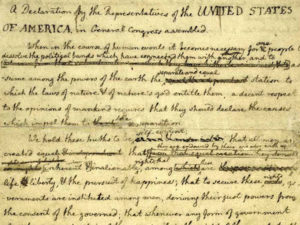 A Declaration by the Representatives of the UNITED STATES
OF AMERICA, in General Congress assembled.
When in the course of human events it becomes necessary for one people to
dissolve the political bands which have connected them with another, and to
-sume among the powers of the earth the separate and equal station to
which the laws of nature & of nature's god entitle them, a decent respect
to the opinions of mankind requires that they should declare the causes
which impel them to the separation.
We hold these truths to be self-evident that all men are
created equal they are endowed by their creator with
among
life & liberty, & the pursuit of happiness; that to secure these rights, go-
vernments are instituted among men, deriving their just powers from
the consent of the governed, that whenever any form of government